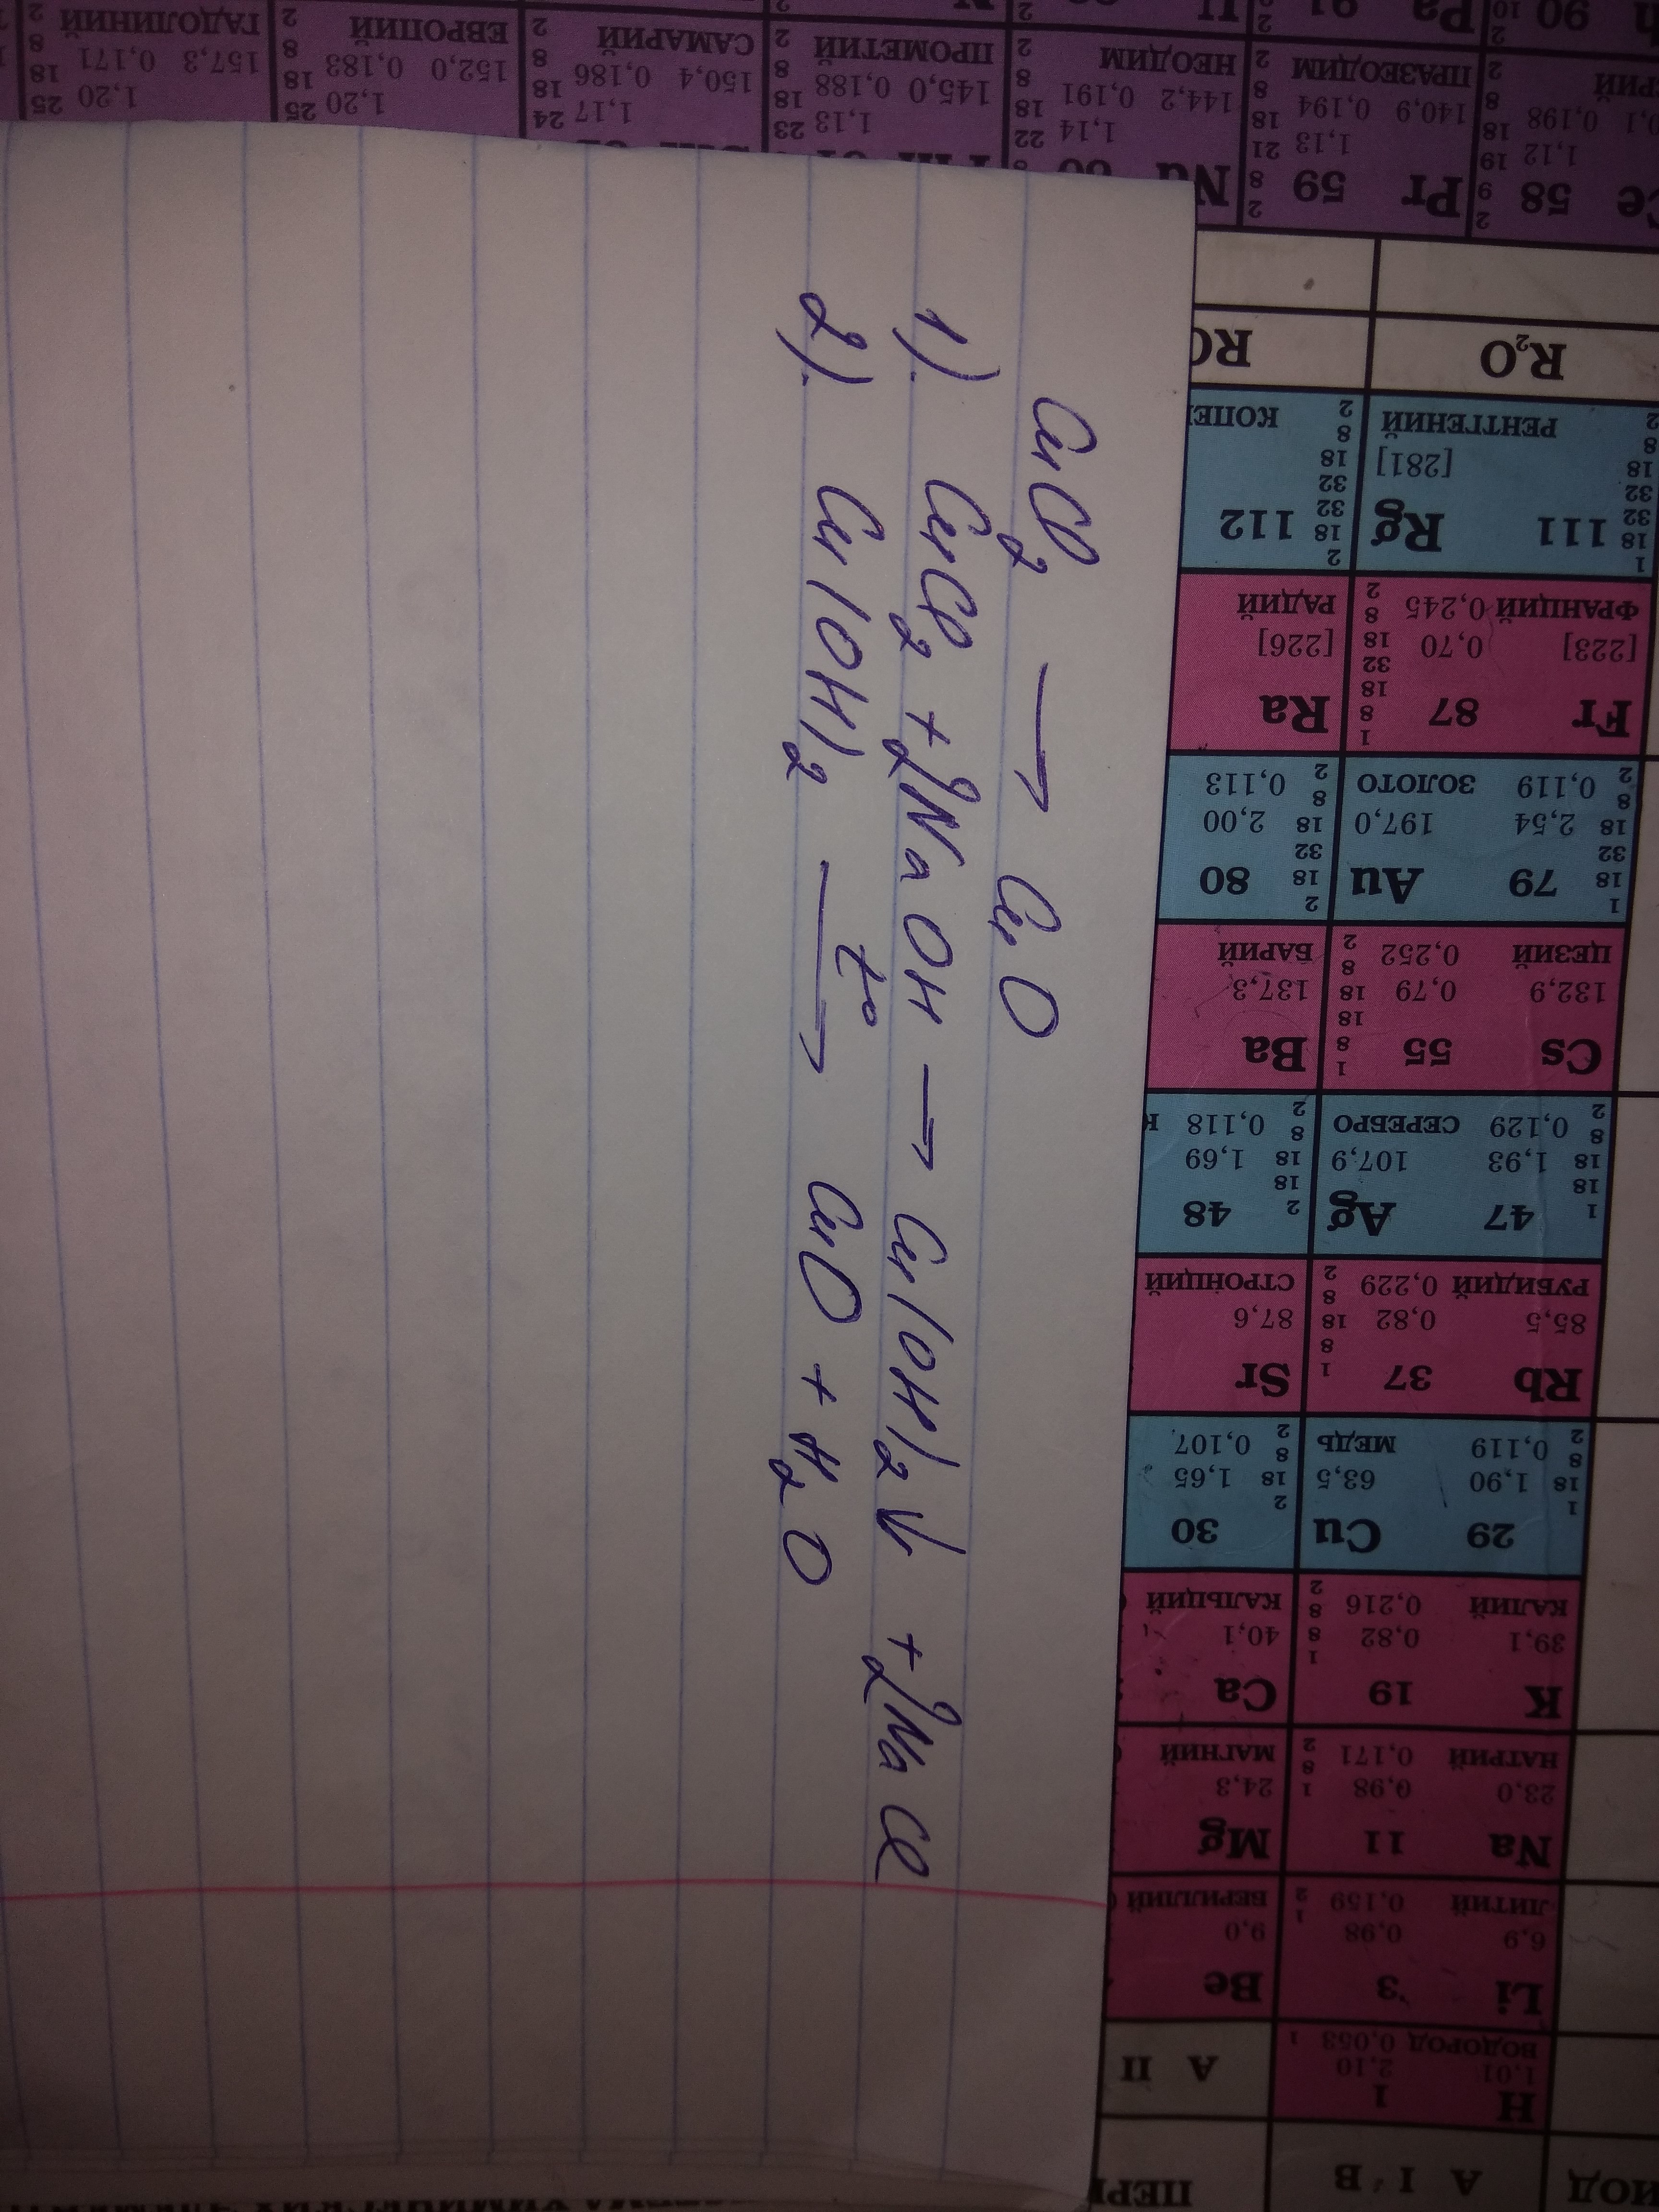 CuCl₂ → CuO
1). CuCl₂ + 2NaOH → Cu(OH)₂↓ + 2NaCl
2). Cu(OH)₂ t° → CuO + H₂O
ГАДОЛИНИЙ
157,3 0,171
1,20
25
18
8
2
ЕВРОПИЙ
152,0 0,183
1,20
25
18
8
2
САМАРИЙ
150,4 0,186
1,17
24
18
8
2
ПРОМЕТИЙ
145,0 0,188
1,13
23
18
8
2
НЕОДИМ
144,2 0,191
1,14
22
18
8
2
ПРАЗЕОДИМ
140,9 0,194
1,13
Pr 59
21
18
8
2
0,198
1,12
58
19
18
8
2
Pa 91
90
R₂O
РЕНТГЕНИЙ
[281]
Rg 111
112
ФРАНЦИЙ 0,245
[223] 0,70
Fr 87
РАДИЙ
[226]
Ra
ЗОЛОТО 0,119
197,0 2,54
Au 79
0,113
2,00
80
ЦЕЗИЙ 0,252
132,9 0,79
Cs 55
БАРИЙ
137,3
Ba
СЕРЕБРО 0,129
107,9 1,93
Ag 47
0,118
1,69
48
РУБИДИЙ 0,229
85,5 0,82
Rb 37
СТРОНЦИЙ
87,6
Sr
МЕДЬ 0,119
63,5 1,90
Cu 29
0,107
1,65
30
КАЛИЙ 0,216
39,1 0,82
K 19
КАЛЬЦИЙ
40,1
Ca
НАТРИЙ 0,171
23,0 0,98
Na 11
МАГНИЙ
24,3
Mg
ЛИТИЙ 0,159
6,9 0,98
Li 3
БЕРИЛЛИЙ
9,0
Be
ВОДОРОД 0,053
1,01 2,10
H 1
А II
А I В